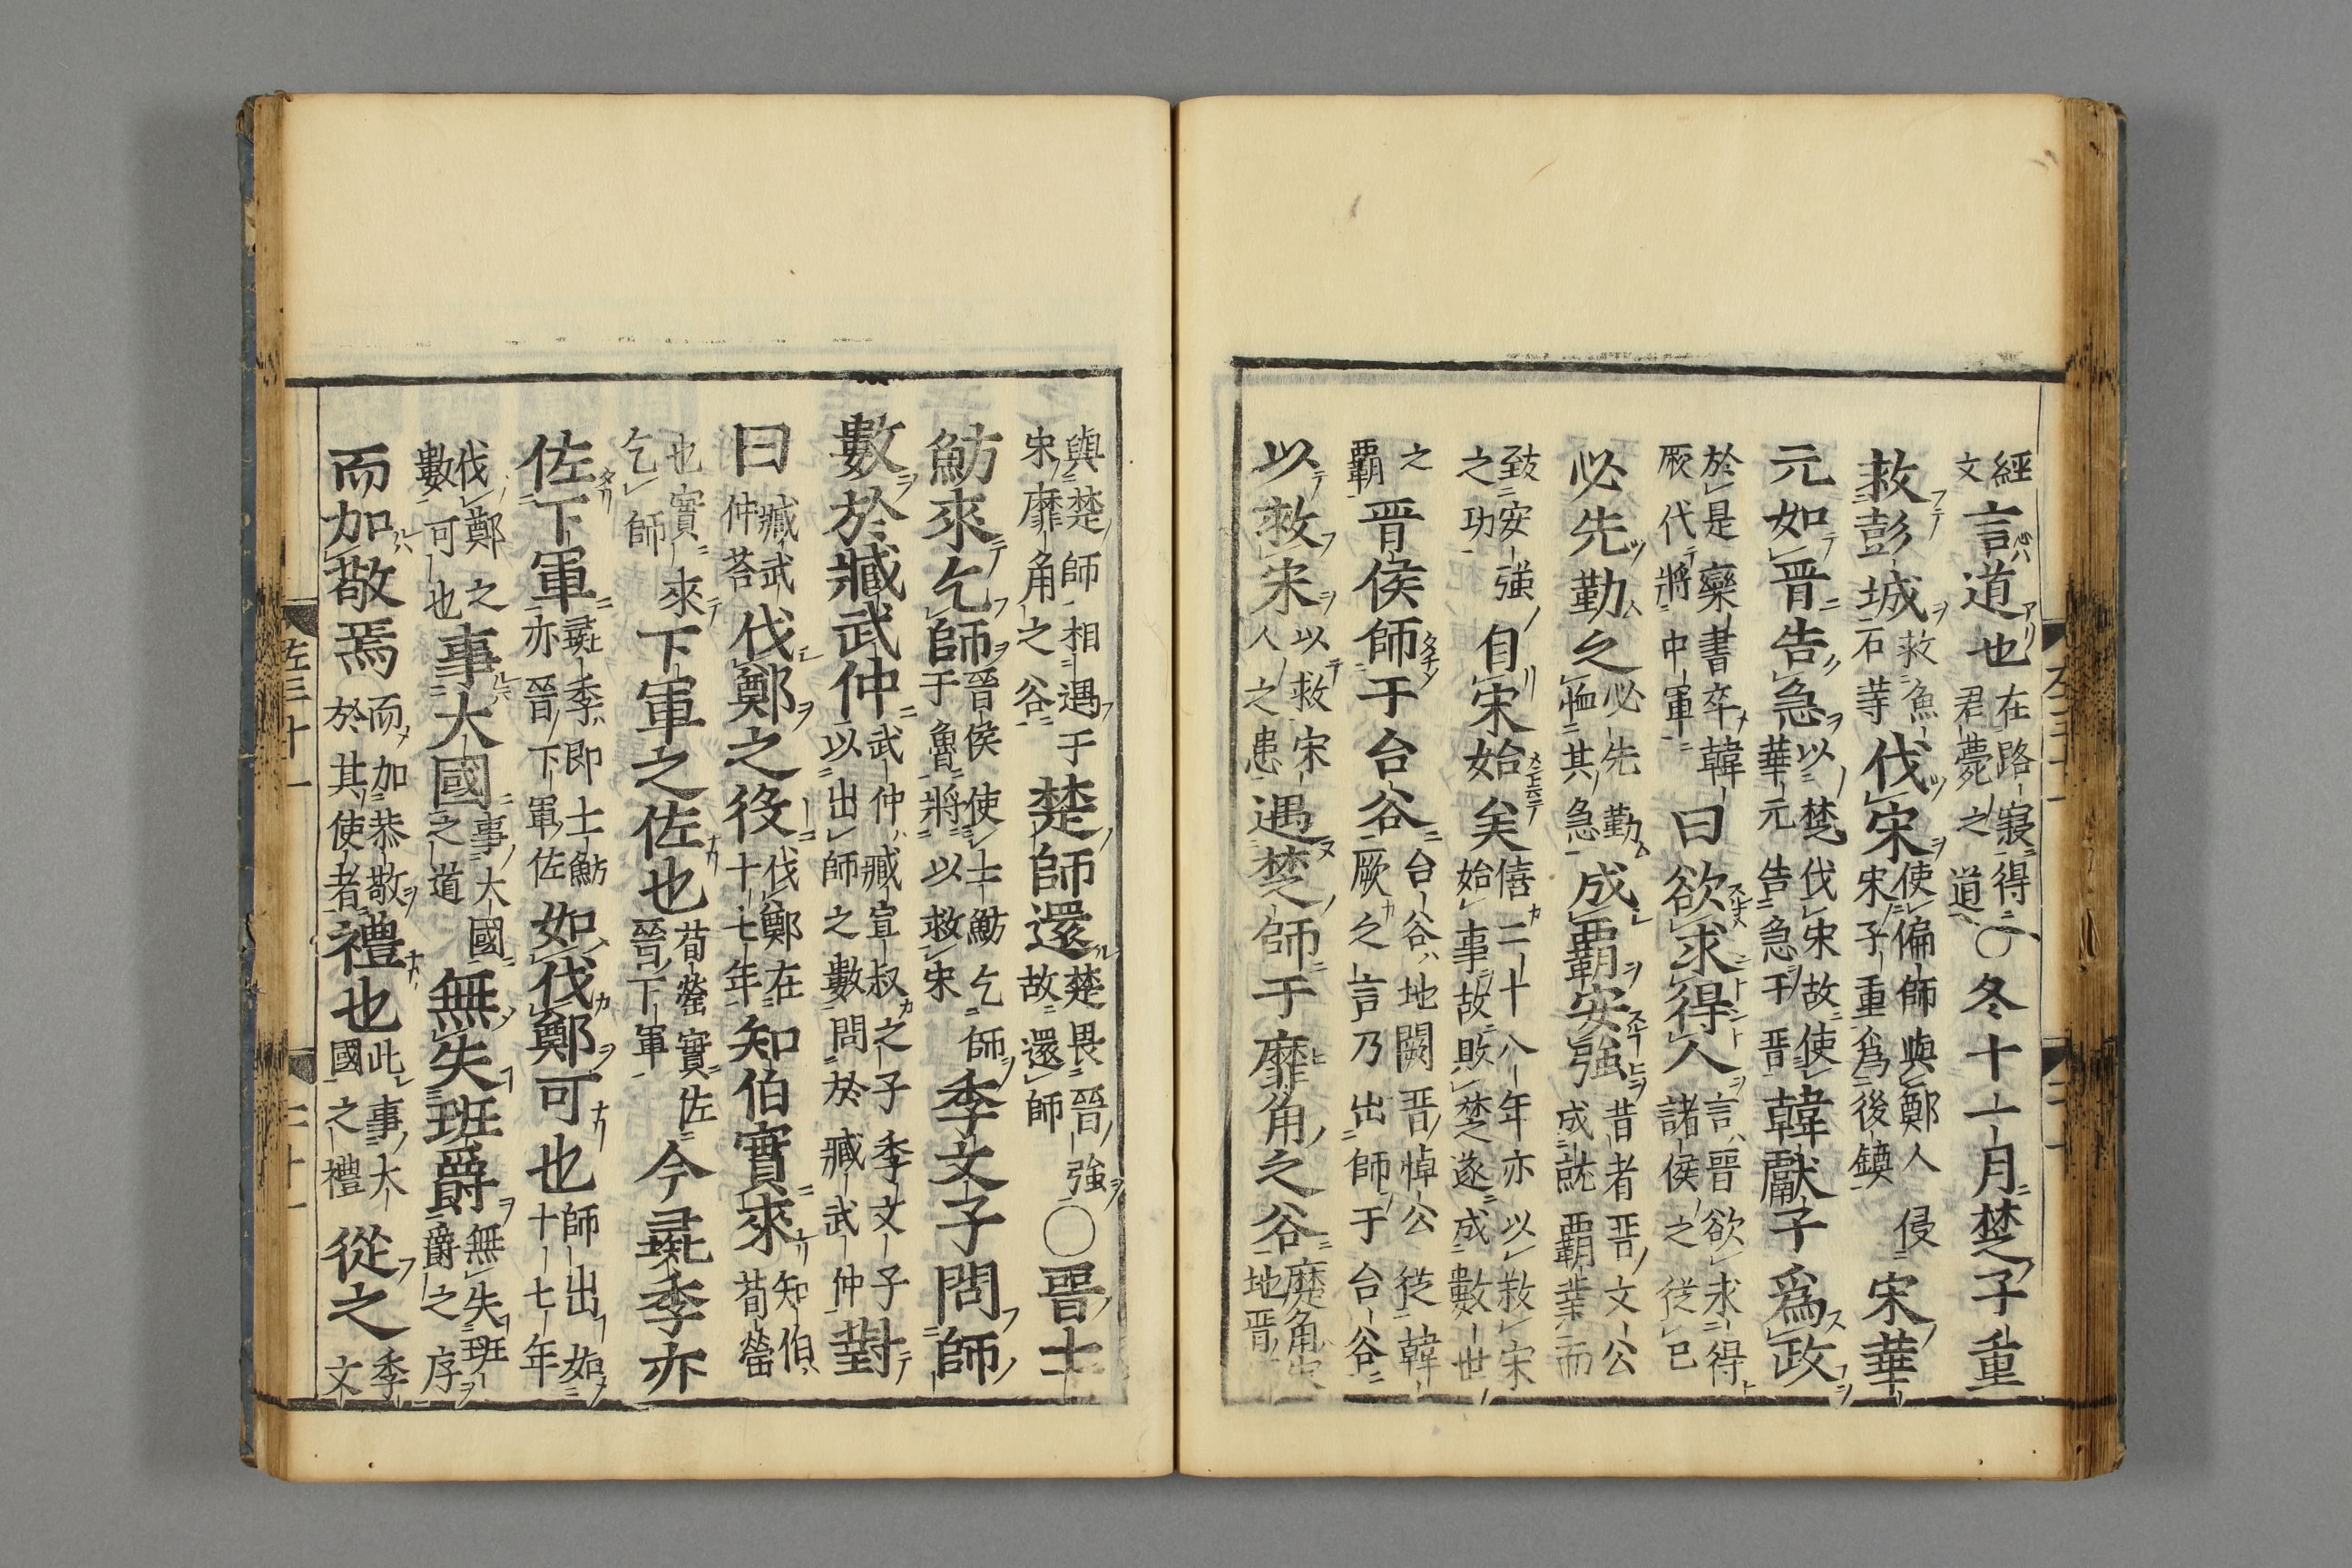 經文言道也在路寢得君薨之道○冬十一月楚子重
救彭城救魚石等伐宋使偏師與鄭人侵宋子重爲後鎮宋華
元如晉告急以楚伐宋故使華元告急于晉韓獻子爲政
於是欒書卒韓厥代將中軍曰欲求得人言晉欲求得諸侯之從已
必先勤之必先勤恤其急成霸安強昔者晉文公成就霸業而
致安強之功自宋始矣僖二十八年亦以救宋始事故敗楚遂成數世
之霸晉侯師于台谷台谷地闕晉悼公從韓厥之言乃出師于台谷
以救宋以救宋人之患遇楚師于靡角之谷靡角宋地晉
與楚師相遇于宋靡角之谷楚師還楚畏晉強故還師○晉士
魴來乞師晉侯使士魴乞師于魯將以救宋季文子問師
數於臧武仲武仲臧宣叔之子季文子以出師之數問於臧武仲對
曰臧武仲荅伐鄭之役伐鄭在十七年知伯實來知伯荀罃
也實來乞師下軍之佐也荀罃實佐晉下軍今彘季亦
佐下軍彘季即士魴亦晉下軍佐如伐鄭可也師出如十七年
伐鄭之數可也事大國事大國之道無失班爵無失班爵之序
而加敬焉而加恭敬於其使者禮也此事大國之禮從之季文
左三十一